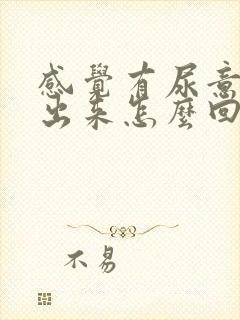 感覺有尿意
出來怎麼回
不易